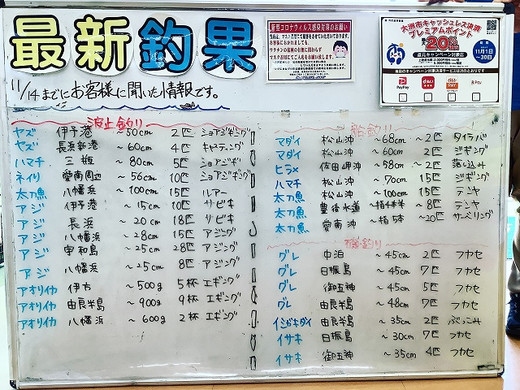 最新釣果
11/14までにお客様に聞いた情報です。
新型コロナウイルス感染対策のお願い
大洲市キャッシュレス決済
プレミアムポイント
20%
還元キャンペーン対象店
11月1日
~30日
PayPay
波止釣り
ヤズ 伊予港 ~50cm 2匹 ショアジギング
ヤズ 長浜新港 ~60cm 4匹 キャスティング
ハマチ 三机 ~80cm 5匹 ショアジギ
ネイリ 愛南周辺 ~56cm 10匹 ショアジギング
太刀魚 八幡浜 ~100cm 15匹 ルアー
アジ 伊予港 ~15cm 10匹 サビキ
アジ 長浜 ~20cm 18匹 サビキ
アジ 八幡浜 ~28cm 15匹 アジング
アジ 宇和島 ~25cm 28匹 アジング
アジ 八幡浜 ~25cm 8匹 アジング
アオリイカ 伊方 ~500g 5杯 エギング
アオリイカ 由良半島 ~900g 9杯 エギング
アオリイカ 八幡浜 ~600g 2杯 エギング
船釣り
マダイ 松山沖 ~68cm ~2匹 タイラバ
マダイ 松山沖 ~60cm 2匹 ジギング
ヒラメ 佐田岬沖 ~58cm ~2匹 落し込み
ハマチ 松山沖 ~70cm 15匹 ジギング
太刀魚 松山沖 ~100cm 15匹 テンヤ
太刀魚 豊後水道 ~指4本半 ~8匹 テンヤ
太刀魚 愛南沖 ~指5本 ~20匹 サーベリング
磯釣り
グレ 中泊 ~45cm 2匹 フカセ
グレ 日振島 ~45cm 7匹 フカセ
グレ 御五神 ~45cm 5匹 フカセ
グレ 由良半島 ~48cm 7匹 フカセ
イシガキダイ 由良半島 ~35cm 2匹 ぶっこみ
イサキ 日振島 ~30cm 7匹 フカセ
イサキ 御五神 ~35cm 4匹 フカセ